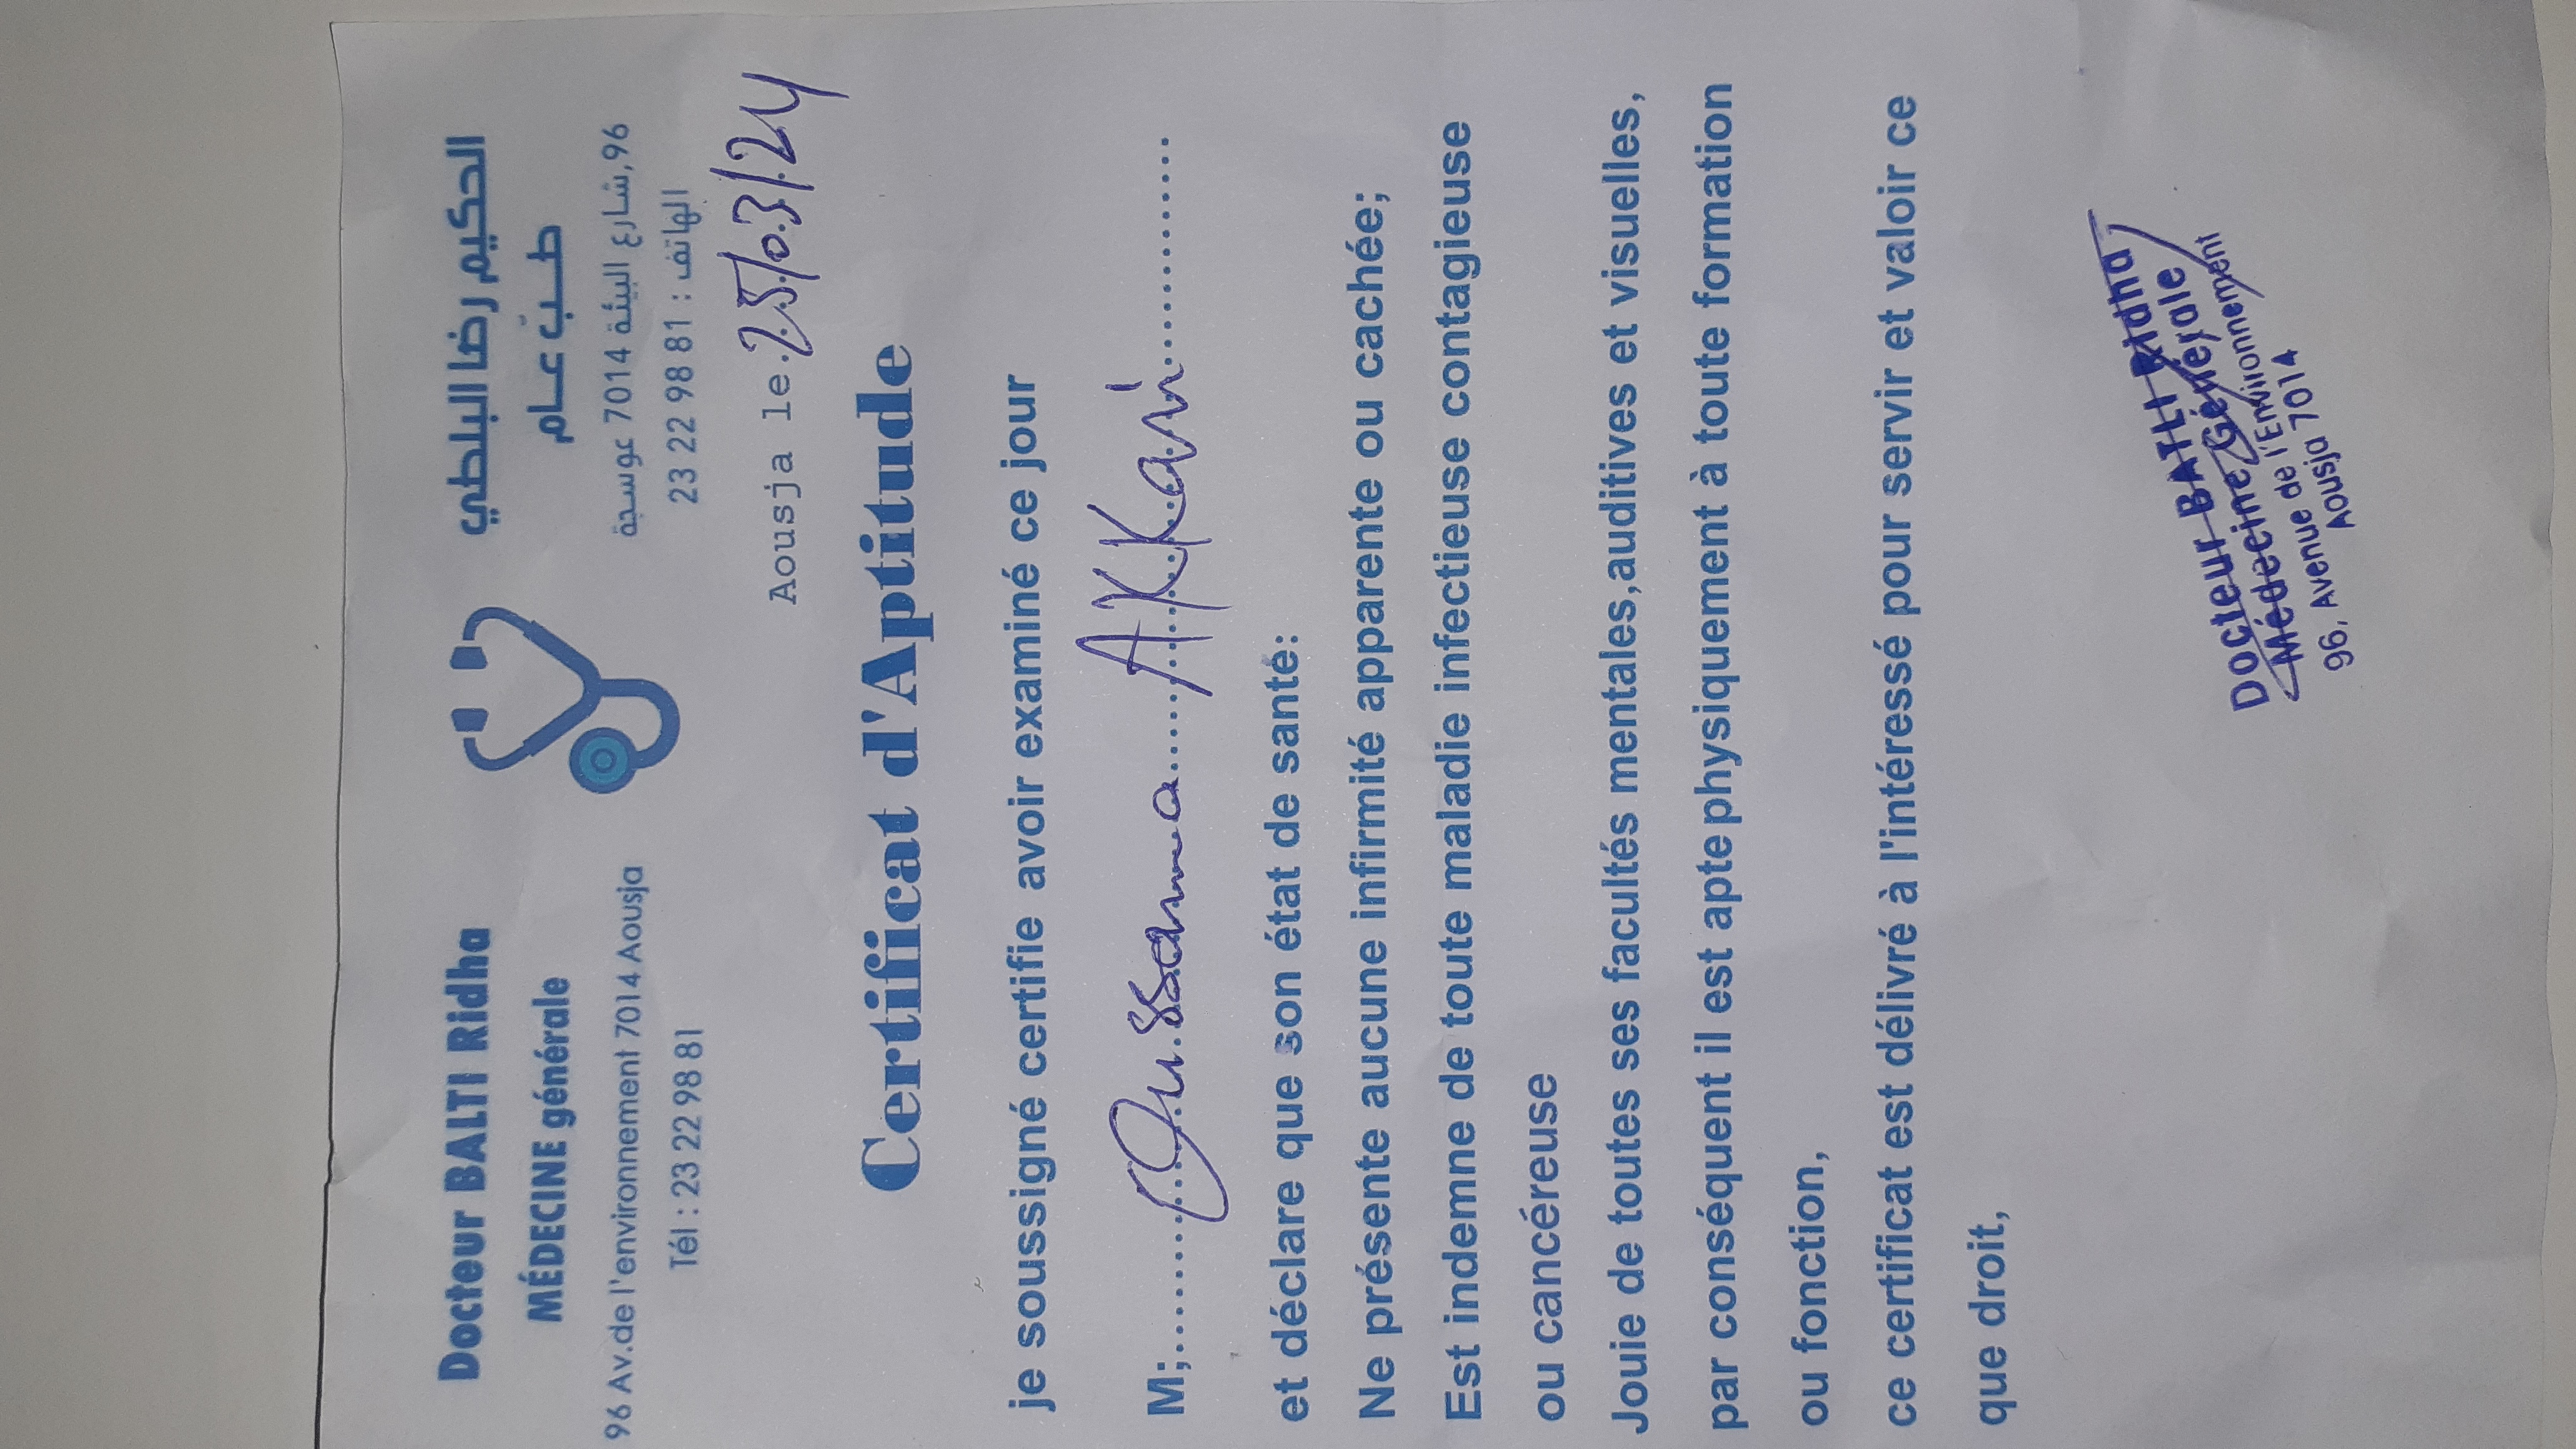 Docteur BALTI Ridha
MÉDECINE générale
96 Av.de l'environnement 7014 Aousja
Tél : 23 22 98 81
الحكيم رضا البلطي
طب عام
96, شارع البيئة 7014 عوسجة
الهاتف : 81 98 22 23
Aousja le 25/03/24
Certificat d'Aptitude
je soussigné certifie avoir examiné ce jour
M;........Oussama.....AKKari..............
et déclare que son état de santé:
Ne présente aucune infirmité apparente ou cachée;
Est indemne de toute maladie infectieuse contagieuse
ou cancéreuse
Jouie de toutes ses facultés mentales,auditives et visuelles,
par conséquent il est apte physiquement à toute formation
ou fonction,
ce certificat est délivré à l'intéressé pour servir et valoir ce
que droit,
Docteur BATLI Ridha
Médecine Générale
96, Avenue de l'Environnement
Aousja 7014